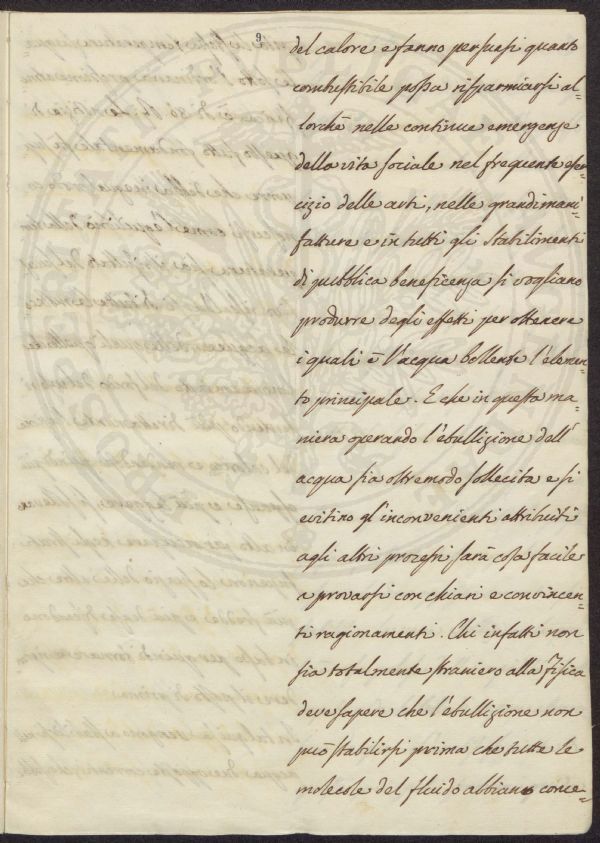 9
del calore e fanno persuasi quanto
combustibile possa risparmiarsi al-
lorché nelle continue emergenze
della vita sociale nel frequente eser-
cizio delle arti, nelle grandi mani-
fatture e in tutti gli stabilimenti
di pubblica beneficenza si vogliano
produrre degli effetti per ottenere
i quali è l'acqua bollente l'elemen-
to principale. E che in questa ma-
niera operando l'ebullizione dell'
acqua sia oltremodo sollecita e si
evitino gl'inconvenienti attribuiti
agli altri processi sarà cosa facile
a provarsi con chiari e convincen-
ti ragionamenti. Chi infatti non
sia totalmente straniero alla Fisica
deve sapere che l'ebullizione non
può stabilirsi prima che tutte le
molecole del fluido abbiano conce-